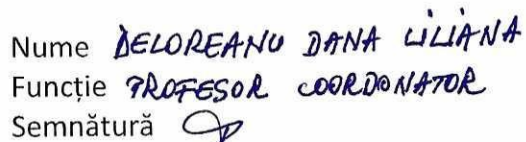 Nume DELOREANU DANA LILIANA
Funcție PROFESOR COORDONATOR
Semnătură